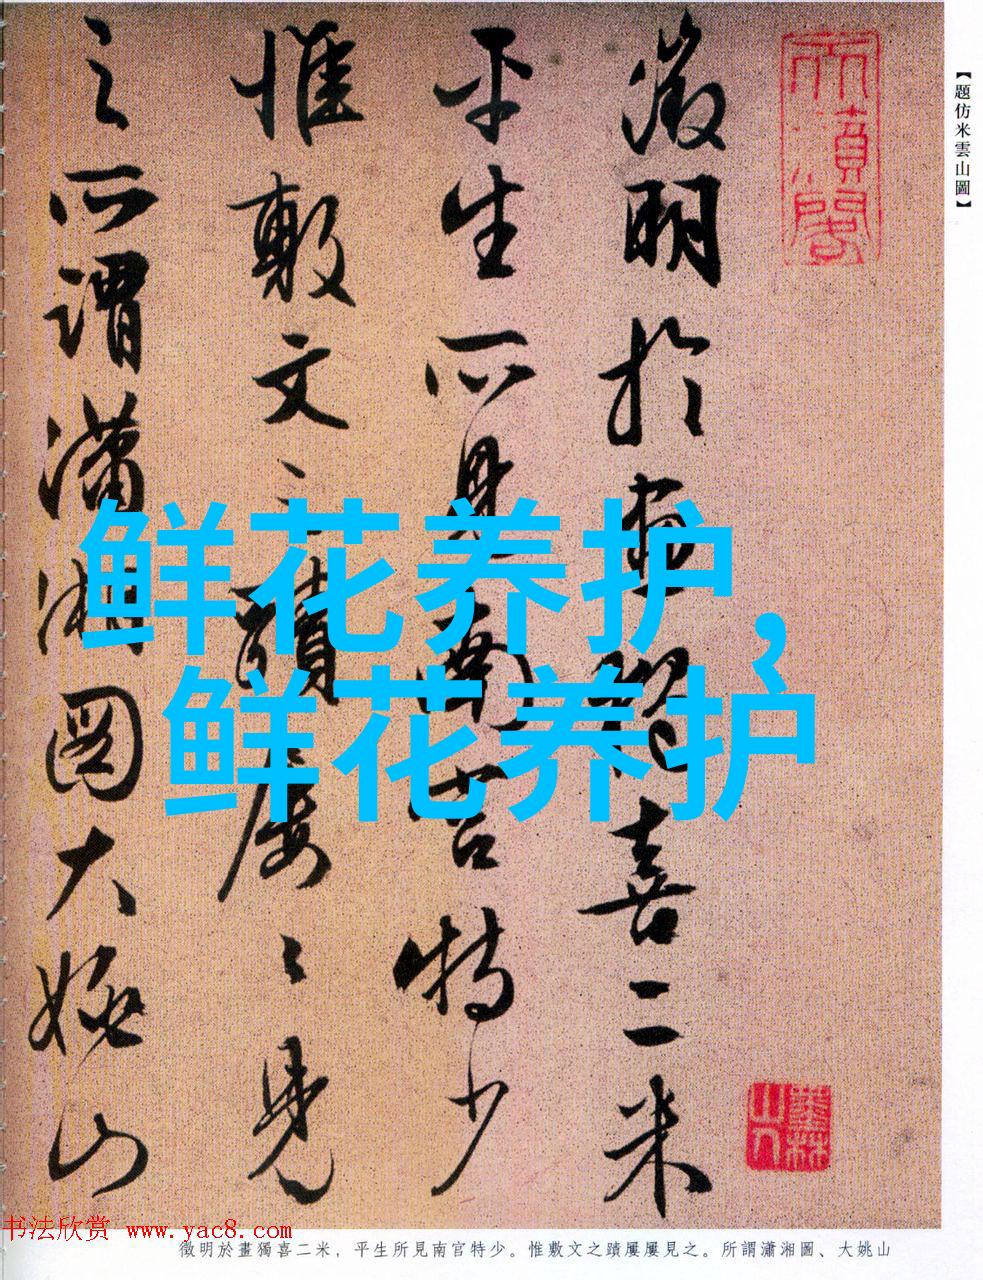 【題仿米雲山圖】
徵明於畫獨喜二米
平生所見南宫特少
惟敷文之蹟屢〻見
之所謂瀟湘图大姚山
鲜花养护，
鲜花养护
墨林
山人
书法欣赏 www.yac8.com
徵明於畫獨喜二米，平生所見南官特少。惟敷文之蹟屢屢見之。所謂瀟湘圖、大姚山